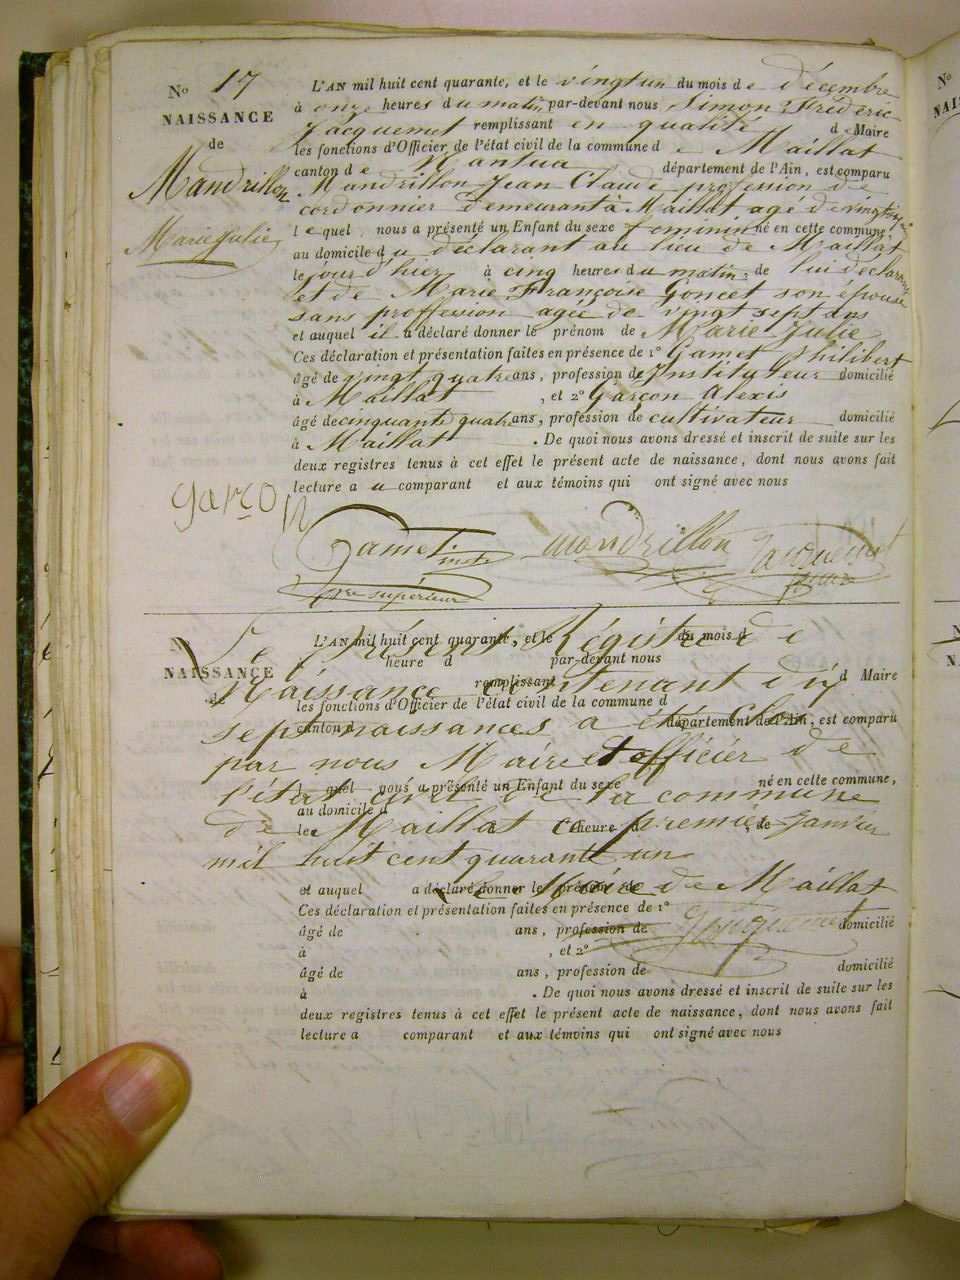 N° 17
NAISSANCE
de
Mandrillon
Marie Julie
L'AN mil huit cent quarante, et le vingt un du mois de décembre
à onze heures du matin par-devant nous Simon Fréderic
Jacquemet remplissant en qualité d e Maire
les fonctions d'Officier de l'état civil de la commune d e Maillat
canton d e Nantua département de l'Ain, est comparu
Mandrillon Jean Claude profession de
cordonnier demeurant à Maillat agé de vingt
l e quel nous a présenté un Enfant du sexe feminin né en cette commune,
au domicile d u déclarant au lieu de Maillat
le jour d'hier à cinq heures du matin ; de lui déclarant
et de Marie Françoise Goncet son épouse
sans proffession agée de vingt sept ans
et auquel il a déclaré donner le prénom de Marie Julie
Ces déclaration et présentation faites en présence de 1° Gamet Philibert
âgé de vingt quatre ans, profession de Instituteur domicilié
à Maillat , et 2° Garçon Alexis
âgé de cinquante quatre ans, profession de cultivateur domicilié
à Maillat . De quoi nous avons dressé et inscrit de suite sur les
deux registres tenus à cet effet le présent acte de naissance, dont nous avons fait
lecture a u comparant et aux témoins qui ont signé avec nous
garçon
Gamet inst mandrillon Jacquemet
p.re supérieur maire
N°
NAISSANCE
de
L'AN mil huit cent quarante, et le du mois d
Le présent Régistre de
heure d par-devant nous
remplissant d Maire
Naissance contenant dix
les fonctions d'Officier de l'état civil de la commune d
canton d département de l'Ain, est comparu
sept naissances a été Clos
par nous Maire et officier de
l quel nous a présenté un Enfant du sexe né en cette commune,
l'état civil de la commune
au domicile d
le heure d ; de
de Maillat ce premier Janvier
mil huit cent quarante un
et auquel a déclaré donner le prénom de
Le Maire de Maillat
Ces déclaration et présentation faites en présence de 1°
Jacquemet
âgé de ans, profession de domicilié
à , et 2°
âgé de ans, profession de domicilié
à . De quoi nous avons dressé et inscrit de suite sur les
deux registres tenus à cet effet le présent acte de naissance, dont nous avons fait
lecture a comparant et aux témoins qui ont signé avec nous
N°